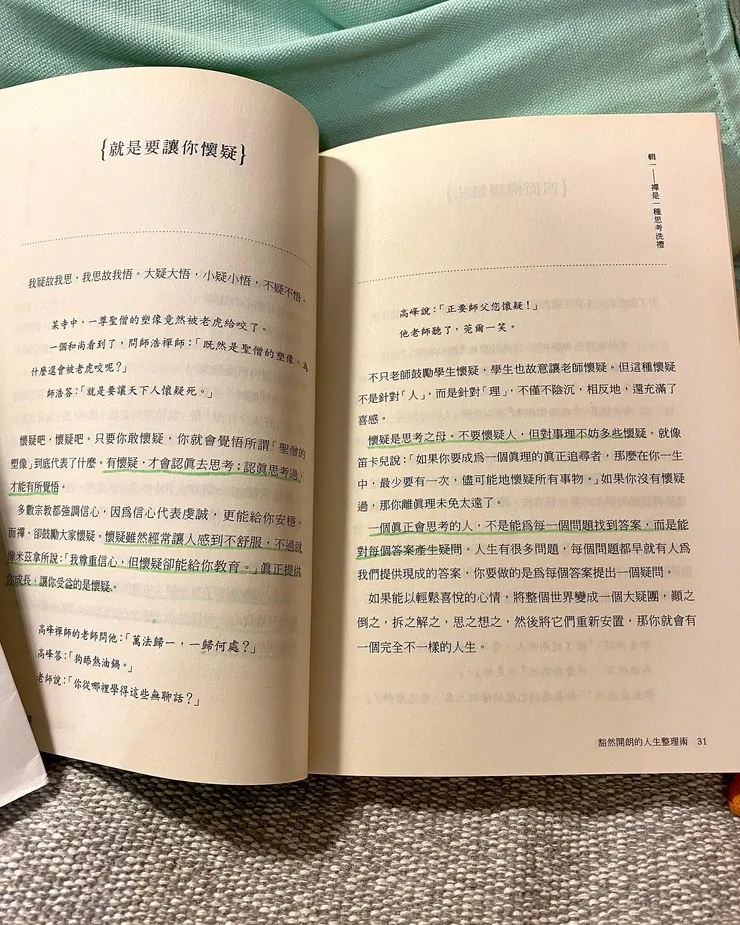 {就是要讓你懷疑}
我疑故我思，我思故我悟。大疑大悟，小疑小悟，不疑不悟。
某寺中，一尊聖僧的塑像竟然被老虎給咬了。
一個和尚看到了，問師浩禪師：「既然是聖僧的塑像，為
什麼還會被老虎咬呢？」
師浩答：「就是要讓天下人懷疑死。」
懷疑吧，懷疑吧。只要你敢懷疑，你就會覺悟所謂「聖僧的
塑像」到底代表了什麼。有懷疑，才會認真去思考；認真思考過，
才能有所覺悟。
多數宗教都強調信心，因為信心代表虔誠，更能給你安穩。
而禪，卻鼓勵大家懷疑。懷疑雖然經常讓人感到不舒服，不過就
像米茲拿所說：「我尊重信心，但懷疑卻能給你教育。」真正提供
你成長、讓你受益的是懷疑。
高峰禪師的老師問他：「萬法歸一，一歸何處？」
高峰答：「狗舔熱油鍋。」
老師說：「你從哪裡學得這些無聊話？」
輯一——禪是一種思考洗禮
高峰說：「正要師父您懷疑！」
他老師聽了，莞爾一笑。
不只老師鼓勵學生懷疑，學生也故意讓老師懷疑。但這種懷疑
不是針對「人」，而是針對「理」，不僅不陰沉，相反地，還充滿了
喜感。
懷疑是思考之母。不要懷疑人，但對事理不妨多些懷疑。就像
笛卡兒說：「如果你要成為一個真理的真正追尋者，那麼在你一生
中，最少要有一次，儘可能地懷疑所有事物。」如果你沒有懷疑
過，那你離真理未免太遠了。
一個真正會思考的人，不是能為每一個問題找到答案，而是能
對每個答案產生疑問。人生有很多問題，每個問題都早就有人為
我們提供現成的答案，你要做的是為每個答案提出一個疑問。
如果能以輕鬆喜悅的心情，將整個世界變成一個大疑團，顛之
倒之，拆之解之，思之想之，然後將它們重新安置，那你就會有
一個完全不一樣的人生。
豁然開朗的人生整理術 31